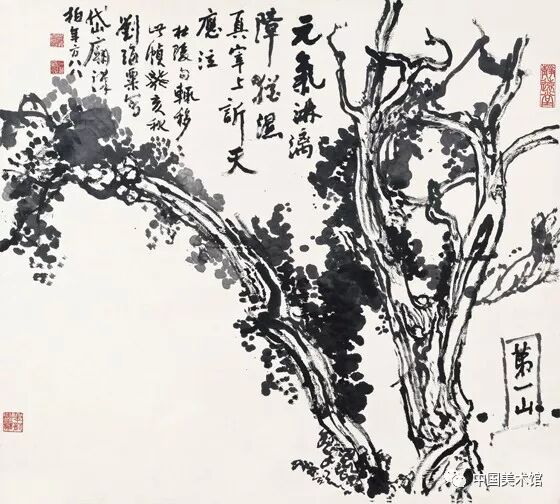 元氣淋漓
障猶濕
真宰上訴天
應泣
杜陵句輒移
此幀癸亥秋
劉海粟寫
岱廟漢
柏年方八八
第一山
中国美术馆